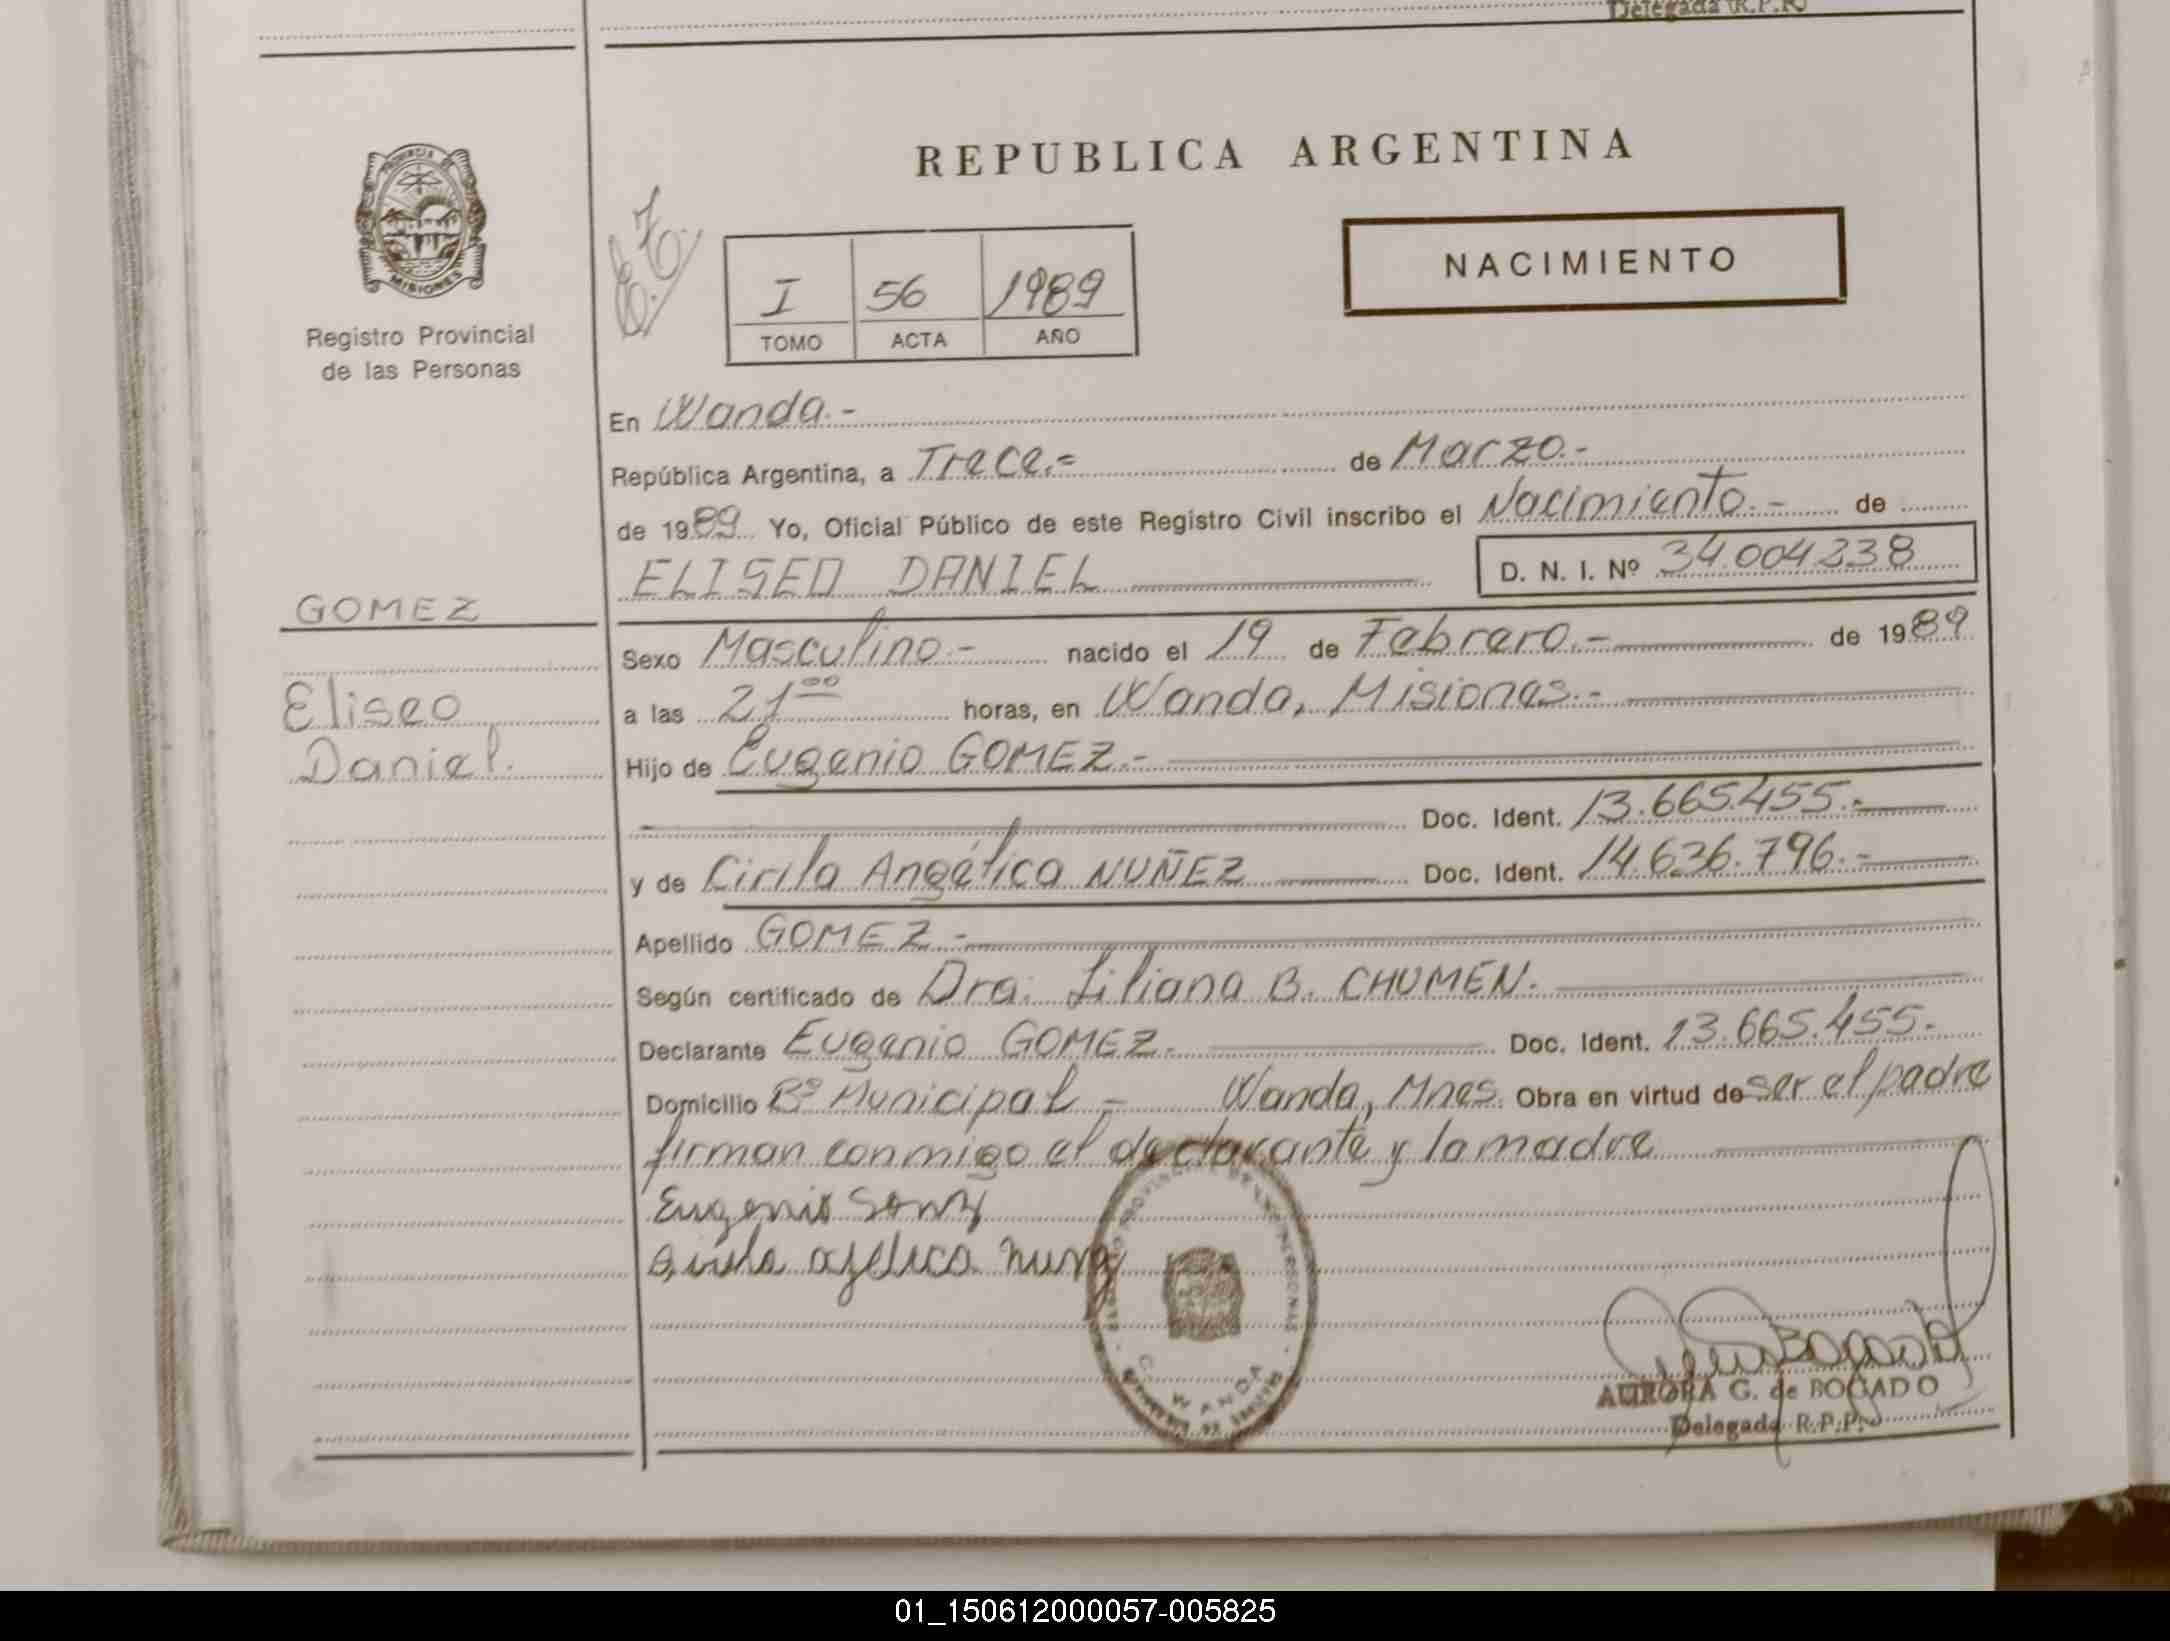 Delegada (R.P.P.)
PROVINCIA DE
MISIONES
Registro Provincial
de las Personas
GOMEZ
Eliseo
Daniel.
REPUBLICA ARGENTINA
NACIMIENTO
I 56 1989
TOMO ACTA AÑO
En Wanda.-
República Argentina, a Trece.= de Marzo.-
de 1989 Yo, Oficial Público de este Registro Civil inscribo el Nacimiento.- de
ELISEO DANIEL D. N. I. Nº 34.004.238
Sexo Masculino.- nacido el 19 de Febrero.- de 1989
a las 21⁰⁰ horas, en Wanda, Misiones.-
Hijo de Eugenio GOMEZ.-
Doc. Ident. 13.665.455.-
y de Cirila Angélica NUÑEZ Doc. Ident. 14.636.796.-
Apellido GOMEZ.-
Según certificado de Dra. Liliana B. CHUMEN.
Declarante Eugenio GOMEZ. Doc. Ident. 13.665.455.-
Domicilio Bº Municipal - Wanda, Mnes. Obra en virtud de ser el padre
firman conmigo el declarante y la madre
Eugenio
WANDA
AURORA G. de BOGADO
Delegada R.P.P.
01_150612000057-005825